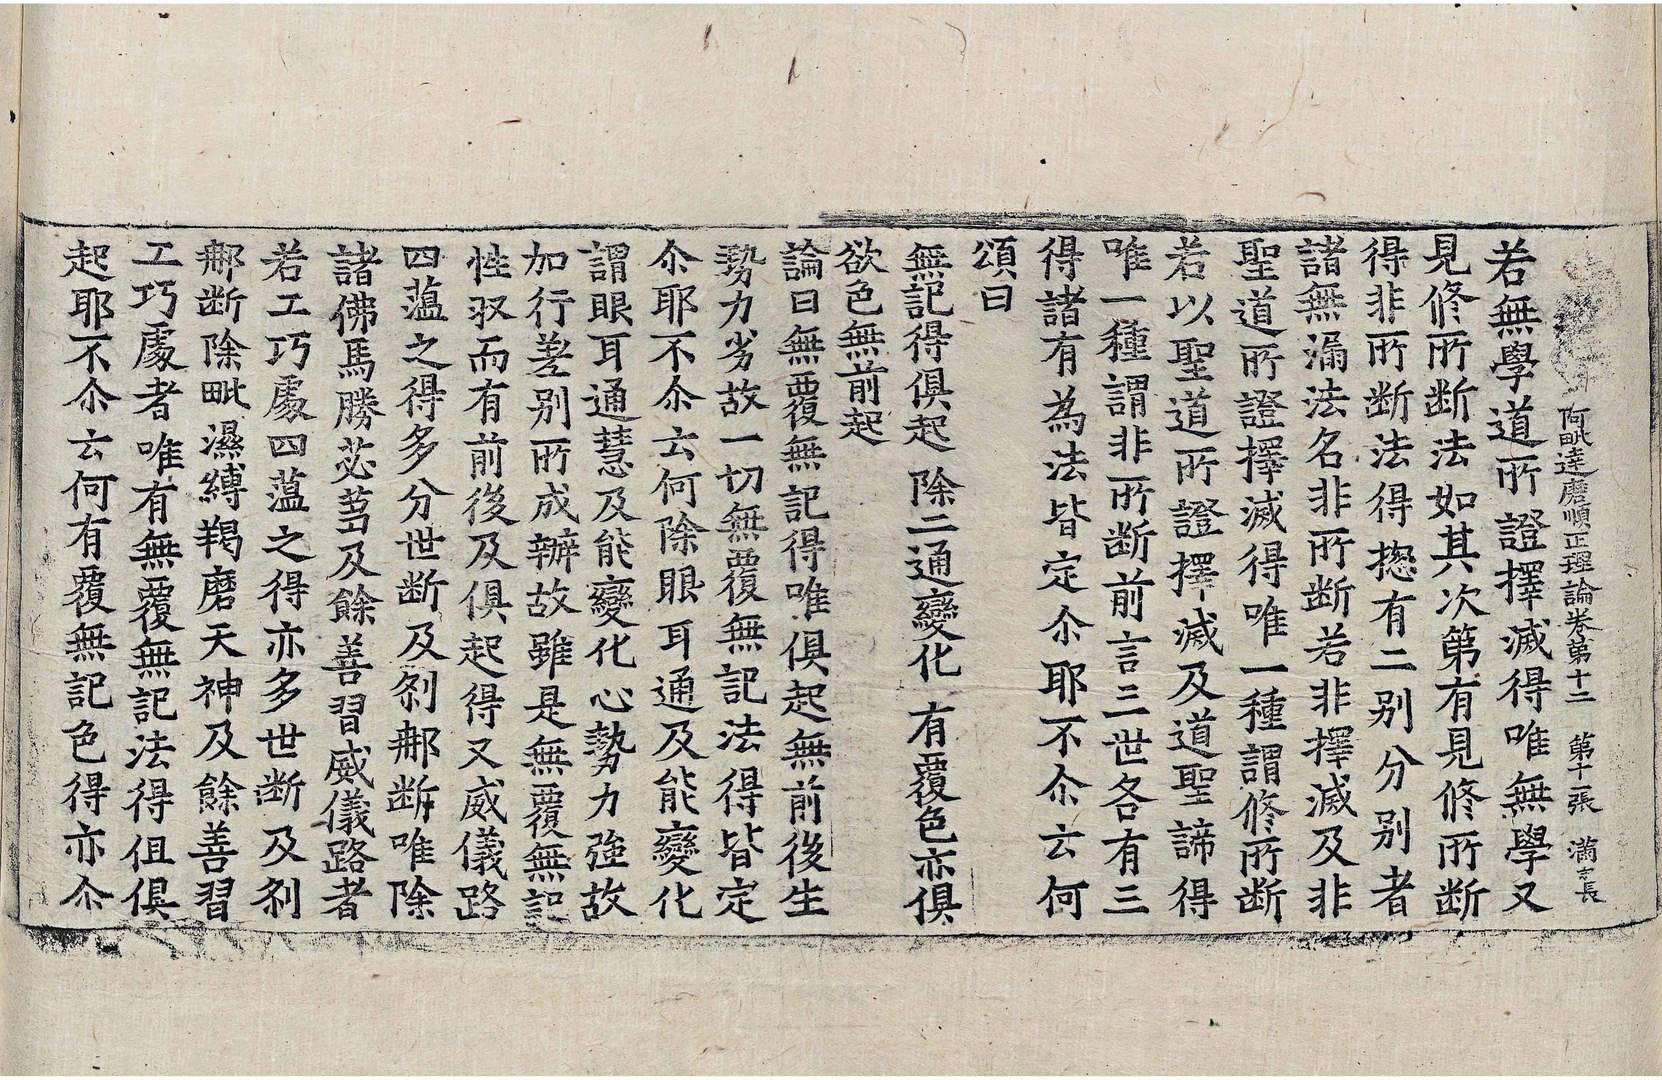 阿毗達磨順正理論卷第十二　第十一張　滿長
若無學道所證擇滅得唯無學又
見修所斷法如其次第有見修所斷
得非所斷法得揔有二別分別者
諸無漏法名非所斷若非擇滅及非
聖道所證擇滅得唯一種謂修所斷
若以聖道所證擇滅及道聖諦得
唯一種謂非所斷前言三世各有三
得諸有為法皆定尒耶不尒云何
頌曰
無記得俱起　除二通變化　有覆色亦俱
欲色無前起
論曰無覆無記得唯俱起無前後生
勢力劣故一切無覆無記法得皆定
尒耶不尒云何除眼耳通及能變化
謂眼耳通慧及能變化心勢力強故
加行差別所成辦故雖是無覆無記
性収而有前後及俱起得又威儀路
四蘊之得多分世斷及剎那斷唯除
諸佛馬勝苾芻及餘善習威儀路者
若工巧處四蘊之得亦多世斷及剎
那斷除毗濕縛羯磨天神及餘善習
工巧處者唯有無覆無記法得但俱
起耶不尒云何有覆無記色得亦尒